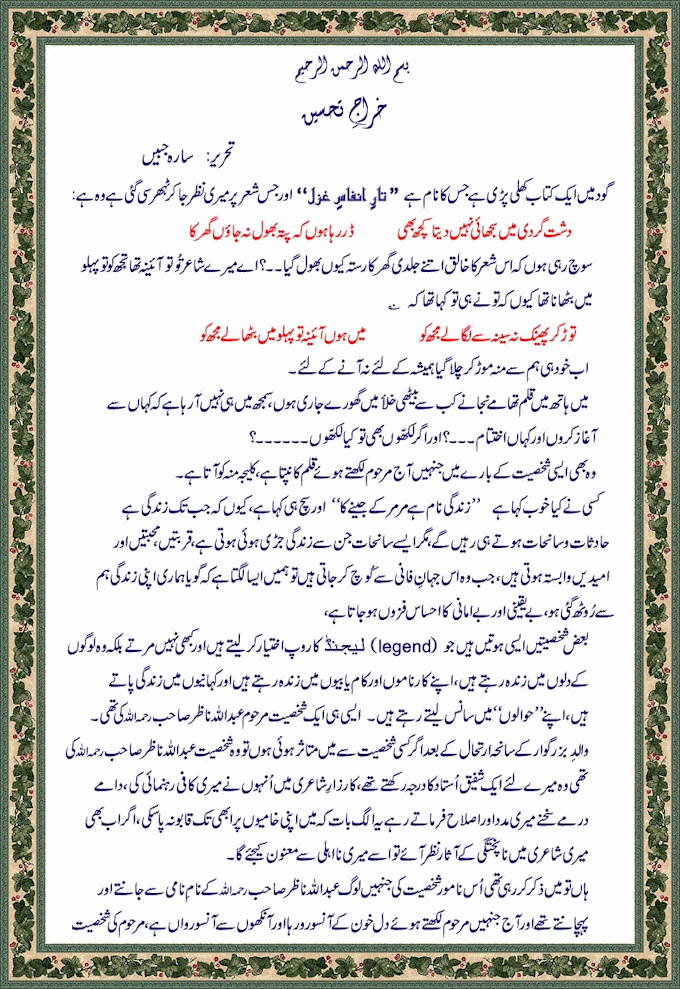 بسم اللہ الرحمن الرحیم
خراجِ تحسین
تحریر: سارہ جبیں
گود میں ایک کتاب کھلی پڑی ہے جس کا نام ہے ”تارِ انفاسِ غزل“ اور جس شعر پر میری نظر جا کر ٹھہر سی گئی ہے وہ ہے:
دشت گردی میں سجھائی نہیں دیتا کچھ بھی ڈر رہا ہوں کہ پتہ بھول نہ جاؤں گھر کا
سوچ رہی ہوں کہ اس شعر کا خالق اتنے جلدی گھر کا رستہ کیوں بھول گیا۔۔؟ اے میرے شاعر تُو تو آئینہ تھا تجھ کو تو پہلو
میں بٹھانا تھا کیوں کہ تو نے ہی تو کہا تھا کہ ؂
توڑ کر پھینک نہ سینہ سے لگا لے مجھ کو میں ہوں آئینہ تو پہلو میں بٹھا لے مجھ کو
اب خود ہی ہم سے منہ موڑ کر چلا گیا ہمیشہ کے لئے نہ آنے کے لئے۔
میں ہاتھ میں قلم تھامے نجانے کب سے بیٹھی خلأ میں گھورے جا رہی ہوں، سمجھ میں ہی نہیں آ رہا ہے کہ کہاں سے
آغاز کروں اور کہاں اختتام ۔۔۔؟ اور اگر لکھّوں بھی تو کیا لکھّوں ۔۔۔۔۔۔؟
وہ بھی ایسی شخصیت کے بارے میں جنہیں آج مرحوم لکھتے ہوئے قلم کانپتا ہے، کلیجہ منہ کو آتا ہے۔
کسی نے کیا خوب کہا ہے ”زندگی نام ہے مر مر کے جینے کا“ اور سچ ہی کہا ہے، کیوں کہ جب تک زندگی ہے
حادثات و سانحات ہوتے ہی رہیں گے، مگر ایسے سانحات جن سے زندگی جڑی ہوئی ہوتی ہے، قربتیں، محبتیں اور
امیدیں وابستہ ہوتی ہیں، جب وہ اس جہانِ فانی سے کُوچ کر جاتی ہیں تو ہمیں ایسا لگتا ہے کہ گویا ہماری اپنی زندگی ہم
سے رُوٹھ گئی ہو، بے یقینی اور بے امانی کا احساس فزوں ہو جاتا ہے،
بعض شخصیتیں ایسی ہوتیں ہیں جو (legend) لیجنڈ کا روپ اختیار کر لیتے ہیں اور کبھی نہیں مرتے بلکہ وہ لوگوں
کے دلوں میں زندہ رہتے ہیں، اپنے کارناموں اور کام یابیوں میں زندہ رہتے ہیں اور کہانیوں میں زندگی پاتے
ہیں، اپنے ”حوالوں“ میں سانس لیتے رہتے ہیں۔ ایسی ہی ایک شخصیت مرحوم عبداللہ ناظر صاحب رحمہ اللہ کی تھی۔
والدِ بزرگوار کے سانحہ ارتحال کے بعد اگر کسی شخصیت سے میں متاثر ہوئی ہوں تو وہ شخصیت عبداللہ ناظر صاحب رحمہ اللہ کی
تھی وہ میرے لئے ایک شفیق اُستاد کا درجہ رکھتے تھے، کارزارِ شاعری میں اُنہوں نے میری کافی رہنمائی کی، دامے
درمے سخنے میری مدد اور اصلاح فرماتے رہے یہ الگ بات کہ میں اپنی خامیوں پر ابھی تک قابو نہ پا سکی، اگر اب بھی
میری شاعری میں ناپختگی کے آثار نظر آئے تو اسے میری نا اہلی سے معنون کیجئے گا۔
ہاں تو میں ذکر کر رہی تھی اُس نامور شخصیت کی جنہیں لوگ عبداللہ ناظر صاحب رحمہ اللہ کے نامِ نامی سے جانتے اور
پہچانتے تھے اور آج جنہیں مرحوم لکھتے ہوئے دل خون کے آنسو رو رہا اور آنکھوں سے آنسو رواں ہے، مرحوم کی شخصیت